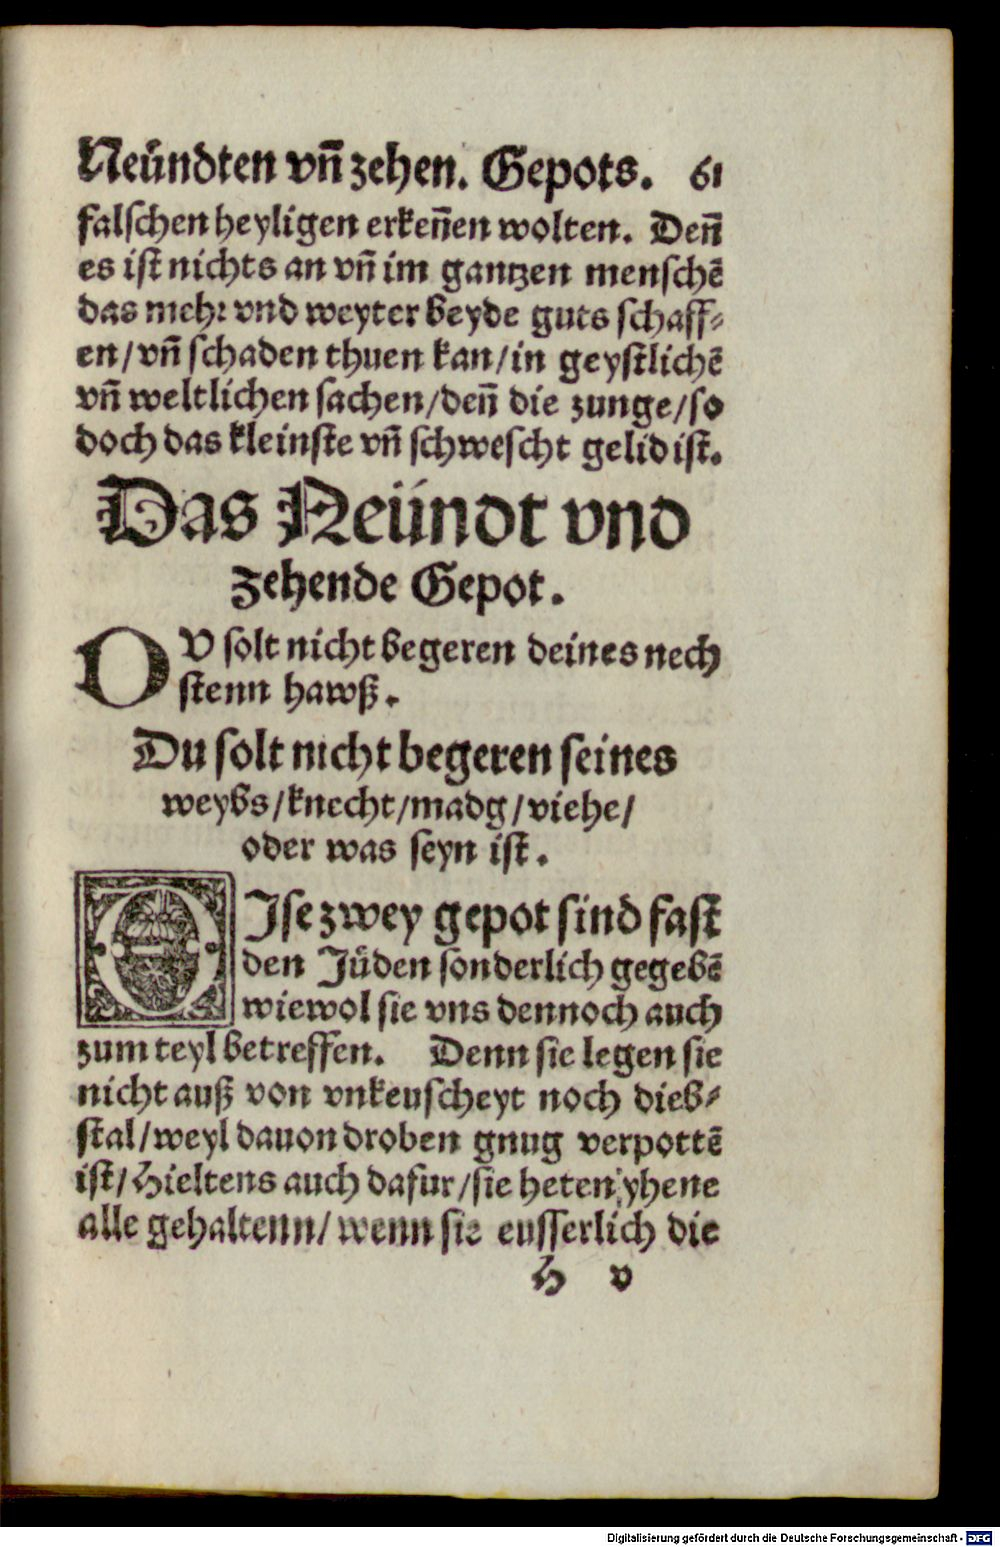 Neündten vñ zehen. Gepots. 61
falschen heyligen erkeñen wolten. Deñ
es ist nichts an vñ im gantzen menschē
das mehr vnd weyter beyde guts schaff⸗
en/vñ schaden thuen kan/in geystlichē
vñ weltlichen sachen/deñ die zunge/so
doch das kleinste vñ schwescht gelid ist.
Das Neündt vnd
zehende Gepot.
DV solt nicht begeren deines nech
stenn hawß.
Du solt nicht begeren seines
weybs/knecht/madg/viehe/
oder was seyn ist.
DIse zwey gepot sind fast
den Jüden sonderlich gegebē
wiewol sie vns dennoch auch
zum teyl betreffen. Denn sie legen sie
nicht auß von vnkeuscheyt noch dieb⸗
stal/weyl dauon droben gnug verpottē
ist/Hieltens auch dafur/sie heten yhene
alle gehaltenn/wenn sie eusserlich die
H v
Digitalisierung gefördert durch die Deutsche Forschungsgemeinschaft - DFG